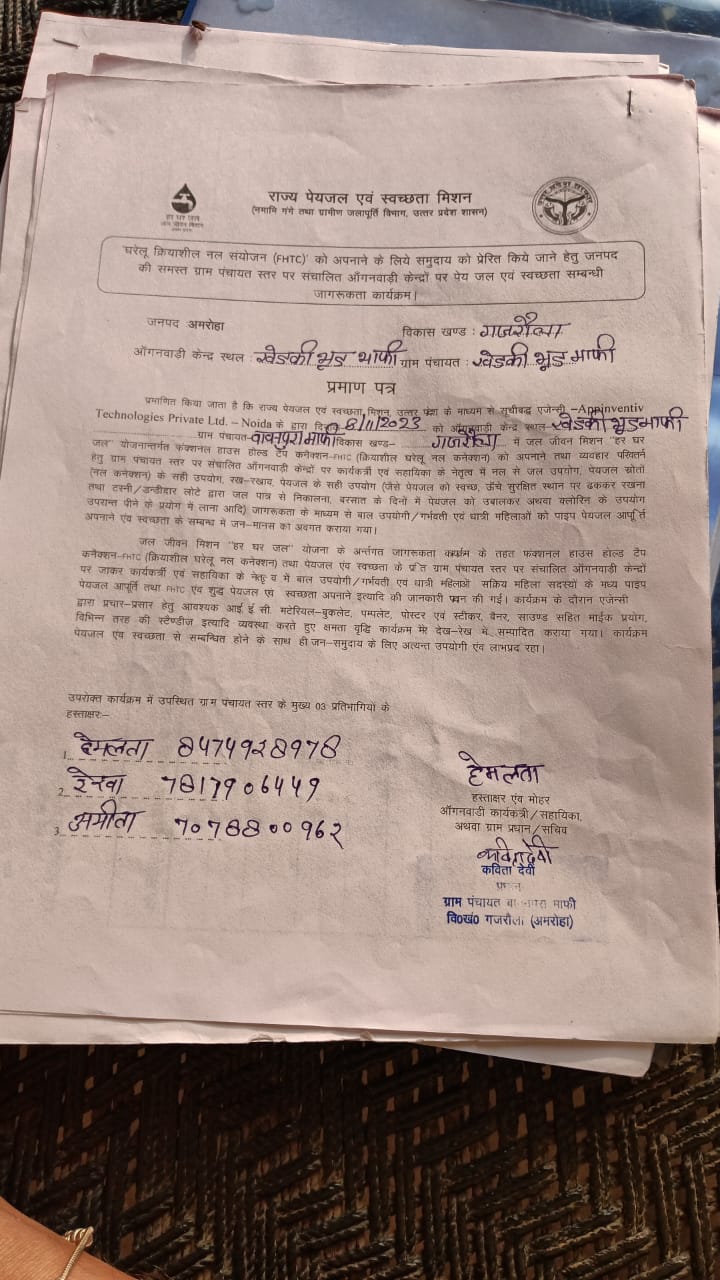 राज्य पेयजल एवं स्वच्छता मिशन
(नमामि गंगे तथा ग्रामीण जलापूर्ति विभाग, उत्तर प्रदेश शासन)
हर घर जल
जल जीवन मिशन
'घरेलू क्रियाशील नल संयोजन (FHTC)' को अपनाने के लिये समुदाय को प्रेरित किये जाने हेतु जनपद
की समस्त ग्राम पंचायत स्तर पर संचालित ऑगनवाड़ी केन्द्रों पर पेय जल एवं स्वच्छता सम्बन्धी
जागरूकता कार्यक्रम।
जनपद : अमरोहा विकास खण्ड : गजरौला
ऑगनवाड़ी केन्द्र स्थल : खेडकी भूड माफी ग्राम पंचायत : खेडकी भूड माफी
प्रमाण पत्र
प्रमाणित किया जाता है कि राज्य पेयजल एवं स्वच्छता मिशन, उत्तर प्रदेश के माध्यम से सूचीबद्ध एजेन्सी –Appinventiv
Technologies Private Ltd. – Noida के द्वारा दिनांक 8/11/2023 को ऑगनवाड़ी केन्द्र स्थल खेडकी भूडमाफी
ग्राम पंचायत- माफी विकास खण्ड- गजरौला में जल जीवन मिशन "हर घर
जल" योजनान्तर्गत फंक्शनल हाउस होल्ड टैप कनेक्शन-FHTC (क्रियाशील घरेलू नल कनेक्शन) को अपनाने तथा व्यवहार परिवर्तन
हेतु ग्राम पंचायत स्तर पर संचालित ऑगनवाड़ी केन्द्रों पर कार्यकर्त्री एवं सहायिका के नेतृत्व में नल से जल उपयोग, पेयजल स्रोतों
(नल कनेक्शन) के सही उपयोग, रख-रखाव, पेयजल के सही उपयोग (जैसे पेयजल को स्वच्छ, ऊँचे सुरक्षित स्थान पर ढककर रखना
तथा टस्नी/डन्डीदार लोटे द्वारा जल पात्र से निकालना, बरसात के दिनों में पेयजल को उबालकर अथवा क्लोरिन के उपयोग
उपरान्त पीने के प्रयोग में लाना आदि) जागरूकता के माध्यम से बाल उपयोगी/गर्भवती एवं धात्री महिलाओं को पाइप पेयजल आपूर्ति
अपनाने एंव स्वच्छता के सम्बन्ध में जन-मानस का अवगत कराया गया।
जल जीवन मिशन "हर घर जल" योजना के अर्न्तगत जागरूकता कार्यक्रम के तहत फंक्शनल हाउस होल्ड टैप
कनेक्शन-FHTC (क्रियाशील घरेलू नल कनेक्शन) तथा पेयजल एंव स्वच्छता के प्रति ग्राम पंचायत स्तर पर संचालित ऑगनवाड़ी केन्द्रों
पर जाकर कार्यकर्त्री एवं सहायिका के नेतृत्व में बाल उपयोगी/गर्भवती एवं धात्री महिलाओं सक्रिय महिला सदस्यों के मध्य पाइप
पेयजल आपूर्ति तथा FHTC एंव शुद्ध पेयजल एंव स्वच्छता अपनाने इत्यादि की जानकारी प्रदान की गई। कार्यक्रम के दौरान एजेन्सी
द्वारा प्रचार-प्रसार हेतु आवश्यक आई. ई. सी. मटेरियल-बुकलेट, पम्पलेट, पोस्टर एवं स्टीकर, बैनर, साउण्ड सहित माईक प्रयोग,
विभिन्न तरह की स्टैण्डीज इत्यादि व्यवस्था करते हुए क्षमता वृद्धि कार्यक्रम मेरे देख-रेख में सम्पादित कराया गया। कार्यक्रम
पेयजल एंव स्वच्छता से सम्बन्धित होने के साथ ही जन-समुदाय के लिए अत्यन्त उपयोगी एंव लाभप्रद रहा।
उपरोक्त कार्यक्रम में उपस्थित ग्राम पंचायत स्तर के मुख्य 03 प्रतिभागियों के
हस्ताक्षर:-
1. हेमलता 8474928978
2. 7817906449
3. अमीता 7078800962
हेमलता
हस्ताक्षर एंव मोहर
ऑगनवाड़ी कार्यकत्री/सहायिका,
अथवा ग्राम प्रधान/सचिव
कविता देवी
कविता देवी
प्रधान
ग्राम पंचायत माफी
वि0खं0 गजरौला (अमरोहा)